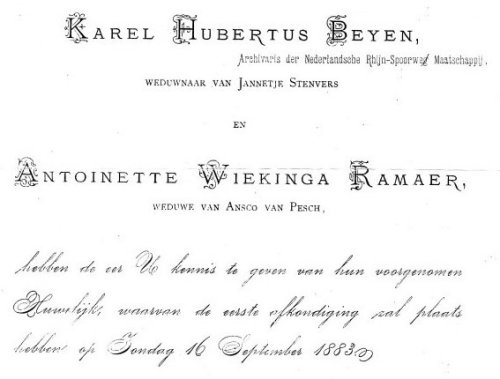 KAREL HUBERTUS BEYEN,
Archivaris der Nederlandsche Rhijn-Spoorweg Maatschappij.
WEDUWNAAR VAN JANNETJE STENVERS
EN
ANTOINETTE WIEKINGA RAMAER,
WEDUWE VAN ANSCO VAN PESCH,
hebben de eer U kennis te geven van hun voorgenomen
Huwelijk, waarvan de eerste afkondiging zal plaats
hebben op Zondag 16 September 1883.